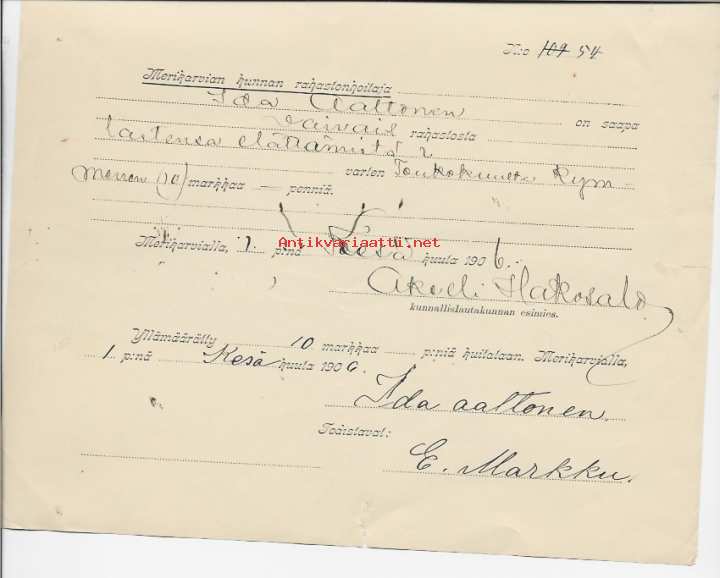 N:o 109 54
Merikarvian kunnan rahastonhoitaja
Ida Aaltonen on saapa
Vaivais rahastosta
lastensa elättämistä
varten Toukokuulta Kym-
menen (10) markkaa — penniä.
Merikarvialla, 1. p:nä Kesä kuuta 1906.
Akseli Hakosalo
kunnallislautakunnan esimies.
Yllämäärätty 10 markkaa p:niä kuitataan. Merikarvialla,
1. p:nä Kesä kuuta 1906.
Ida aaltonen.
Todistavat:
E. Markku.
Antikvariaatti.net